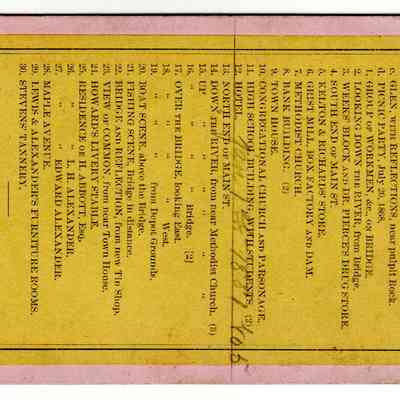 c. GLEN, WITH REFLECTIONS, near pulpit Rock.
d. PICNIC PARTY, July 29, 1868.
1. GROUP OF WORKMEN, &c., ON BRIDGE.
2. LOOKING DOWN THE RIVER, from Bridge.
3. WEEKS' BLOCK AND DR. PIERCE'S DRUG STORE.
4. SOUTH END OF MAIN ST.
5. KEYSON & REPHLEDS' STORE.
6. GRIST MILL, BOX FACTORY AND DAM.
7. METHODIST CHURCH.
8. BANK BUILDING. (2)
9. TOWN HOUSE.
10. CONGREGATIONAL CHURCH AND PARSONAGE.
11. HIGH SCHOOL BUILDING, WITH STUDENTS. (2)
12. HOTEL.
13. NORTH END OF MAIN ST.
14. DOWN THE RIVER, from near Methodist Church. (3)
15. UP " " " " "
16. " " " Bridge. [2]
17. OVER THE BRIDGE, looking East.
18. " " " West.
19. " " from Depot Grounds.
20. BOAT SCENE, above the Bridge.
21. FISHING SCENE, Bridge in distance.
22. BRIDGE AND REFLECTION, from new Tin Shop.
23. VIEW OF COMMON, from near Town House.
24. HOWARD'S LIVERY STABLE.
25. RESIDENCE OF R. ABBOTT, Esq.
26. " " L. H. ALEXANDER.
27. " " EDWARD ALEXANDER.
28. MAPLE AVENUE.
29. LEWIS & ALEXANDER'S FURNITURE ROOMS.
30. STEVENS' TANNERY.